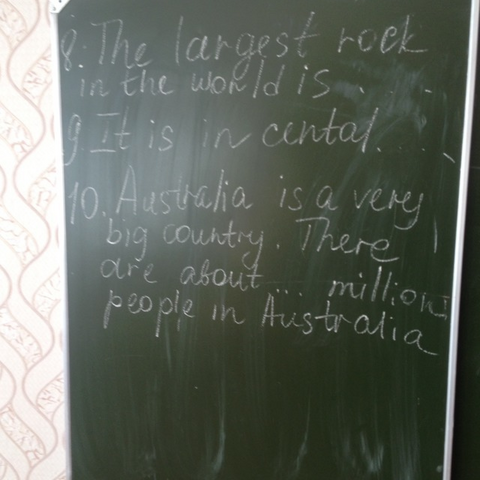 8. The largest rock
in the world is . . . .
9. It is in cental. . . .
10. Australia is a very
big country. There
are about ... million
people in Australia